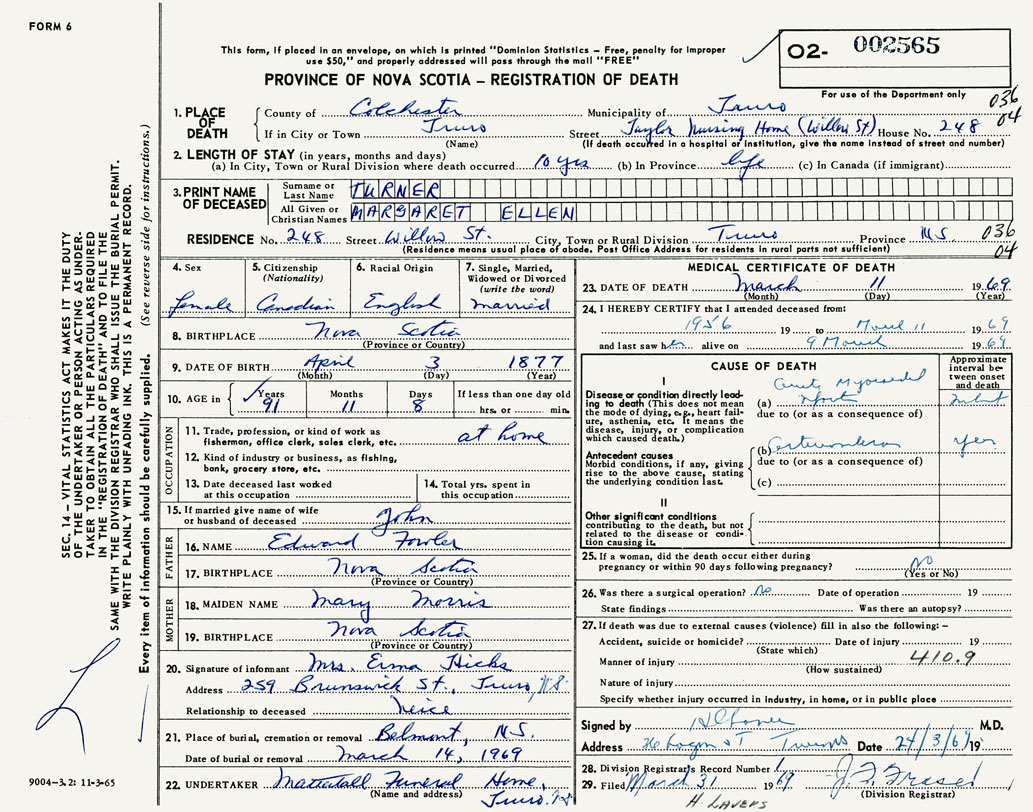 FORM 6
This form, if placed in an envelope, on which is printed "Dominion Statistics – Free, penalty for improper
use $50," and properly addressed will pass through the mail "FREE"
PROVINCE OF NOVA SCOTIA – REGISTRATION OF DEATH
O2- 002565
For use of the Department only
036
04
1. PLACE OF DEATH
County of Colchester Municipality of Truro
If in City or Town Truro Street Taylor Nursing Home (Willow St) House No. 248
(Name) (If death occurred in a hospital or institution, give the name instead of street and number)
2. LENGTH OF STAY (in years, months and days)
(a) In City, Town or Rural Division where death occurred 10 yrs (b) In Province life (c) In Canada (if immigrant)
3. PRINT NAME OF DECEASED
Surname or Last Name TURNER
All Given or Christian Names MARGARET ELLEN
RESIDENCE No. 248 Street Willow St. City, Town or Rural Division Truro Province N.S. 036
(Residence means usual place of abode. Post Office Address for residents in rural parts not sufficient) 04
4. Sex female
5. Citizenship (Nationality) Canadian
6. Racial Origin English
7. Single, Married, Widowed or Divorced (write the word) married
8. BIRTHPLACE Nova Scotia
(Province or Country)
9. DATE OF BIRTH April 3 1877
(Month) (Day) (Year)
10. AGE in Years 91 Months 11 Days 8 If less than one day old hrs. or min.
OCCUPATION
11. Trade, profession, or kind of work as fisherman, office clerk, sales clerk, etc. at home
12. Kind of industry or business, as fishing, bank, grocery store, etc.
13. Date deceased last worked at this occupation
14. Total yrs. spent in this occupation
15. If married give name of wife or husband of deceased John
FATHER
16. NAME Edward Fowler
17. BIRTHPLACE Nova Scotia
(Province or Country)
MOTHER
18. MAIDEN NAME Mary Morris
19. BIRTHPLACE Nova Scotia
(Province or Country)
20. Signature of informant Mrs. Erma Hicks
Address 259 Brunswick St., Truro, N.S.
Relationship to deceased neice
21. Place of burial, cremation or removal Belmont, N.S.
Date of burial or removal March 14, 1969
22. UNDERTAKER Mattatall Funeral Home,
(Name and address) Truro. N.S.
MEDICAL CERTIFICATE OF DEATH
23. DATE OF DEATH March 11 1969
(Month) (Day) (Year)
24. I HEREBY CERTIFY that I attended deceased from:
1956 19 to March 11 1969
and last saw her alive on 9 March 1969
CAUSE OF DEATH
Approximate interval between onset and death
I
Disease or condition directly leading to death (This does not mean the mode of dying, e.g., heart failure, asthenia, etc. It means the disease, injury, or complication which caused death.)
Acute Myocardial
(a)
due to (or as a consequence of)
Antecedent causes
Morbid conditions, if any, giving rise to the above cause, stating the underlying condition last.
(b)
due to (or as a consequence of)
(c)
II
Other significant conditions
contributing to the death, but not related to the disease or condition causing it.
25. If a woman, did the death occur either during pregnancy or within 90 days following pregnancy? No
(Yes or No)
26. Was there a surgical operation? no Date of operation 19
State findings Was there an autopsy?
27. If death was due to external causes (violence) fill in also the following: –
Accident, suicide or homicide? Date of injury 19
(State which)
Manner of injury 410.9
(How sustained)
Nature of injury
Specify whether injury occurred in industry, in home, or in public place
Signed by M.D.
Address St Truro Date 24/3/69 19
28. Division Registrar's Record Number
29. Filed March 31 1969 J. F. Fraser
(Division Registrar)
H. LAVERS
SEC. 14 – VITAL STATISTICS ACT MAKES IT THE DUTY
OF THE UNDERTAKER OR PERSON ACTING AS UNDER-
TAKER TO OBTAIN ALL THE PARTICULARS REQUIRED
IN THE "REGISTRATION OF DEATH" AND TO FILE THE
SAME WITH THE DIVISION REGISTRAR WHO SHALL ISSUE THE BURIAL PERMIT.
WRITE PLAINLY WITH UNFADING INK. THIS IS A PERMANENT RECORD.
Every item of information should be carefully supplied. (See reverse side for instructions.)
9004–3.2: 11-3-65